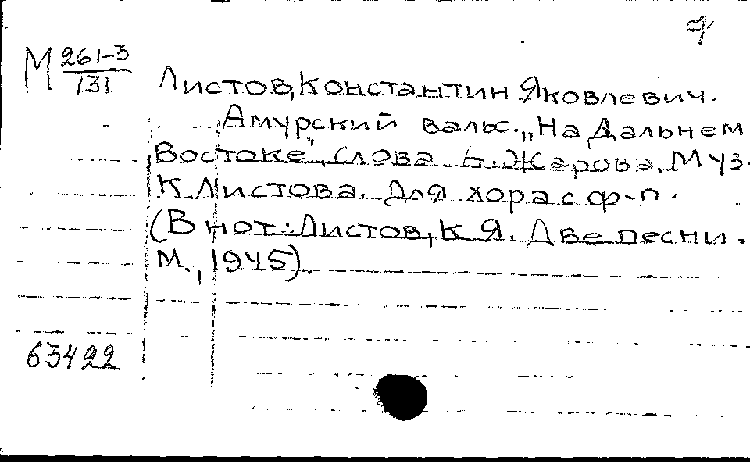 М 261-3
131
Листов, Константин Яковлевич.
Амурский вальс. „На Дальнем
Востоке". Слова А. Жарова. Муз.
К. Листова. Для хора с ф-п.
(В нот.: Листов, К. Я. Две песни.
М., 1945)
63422